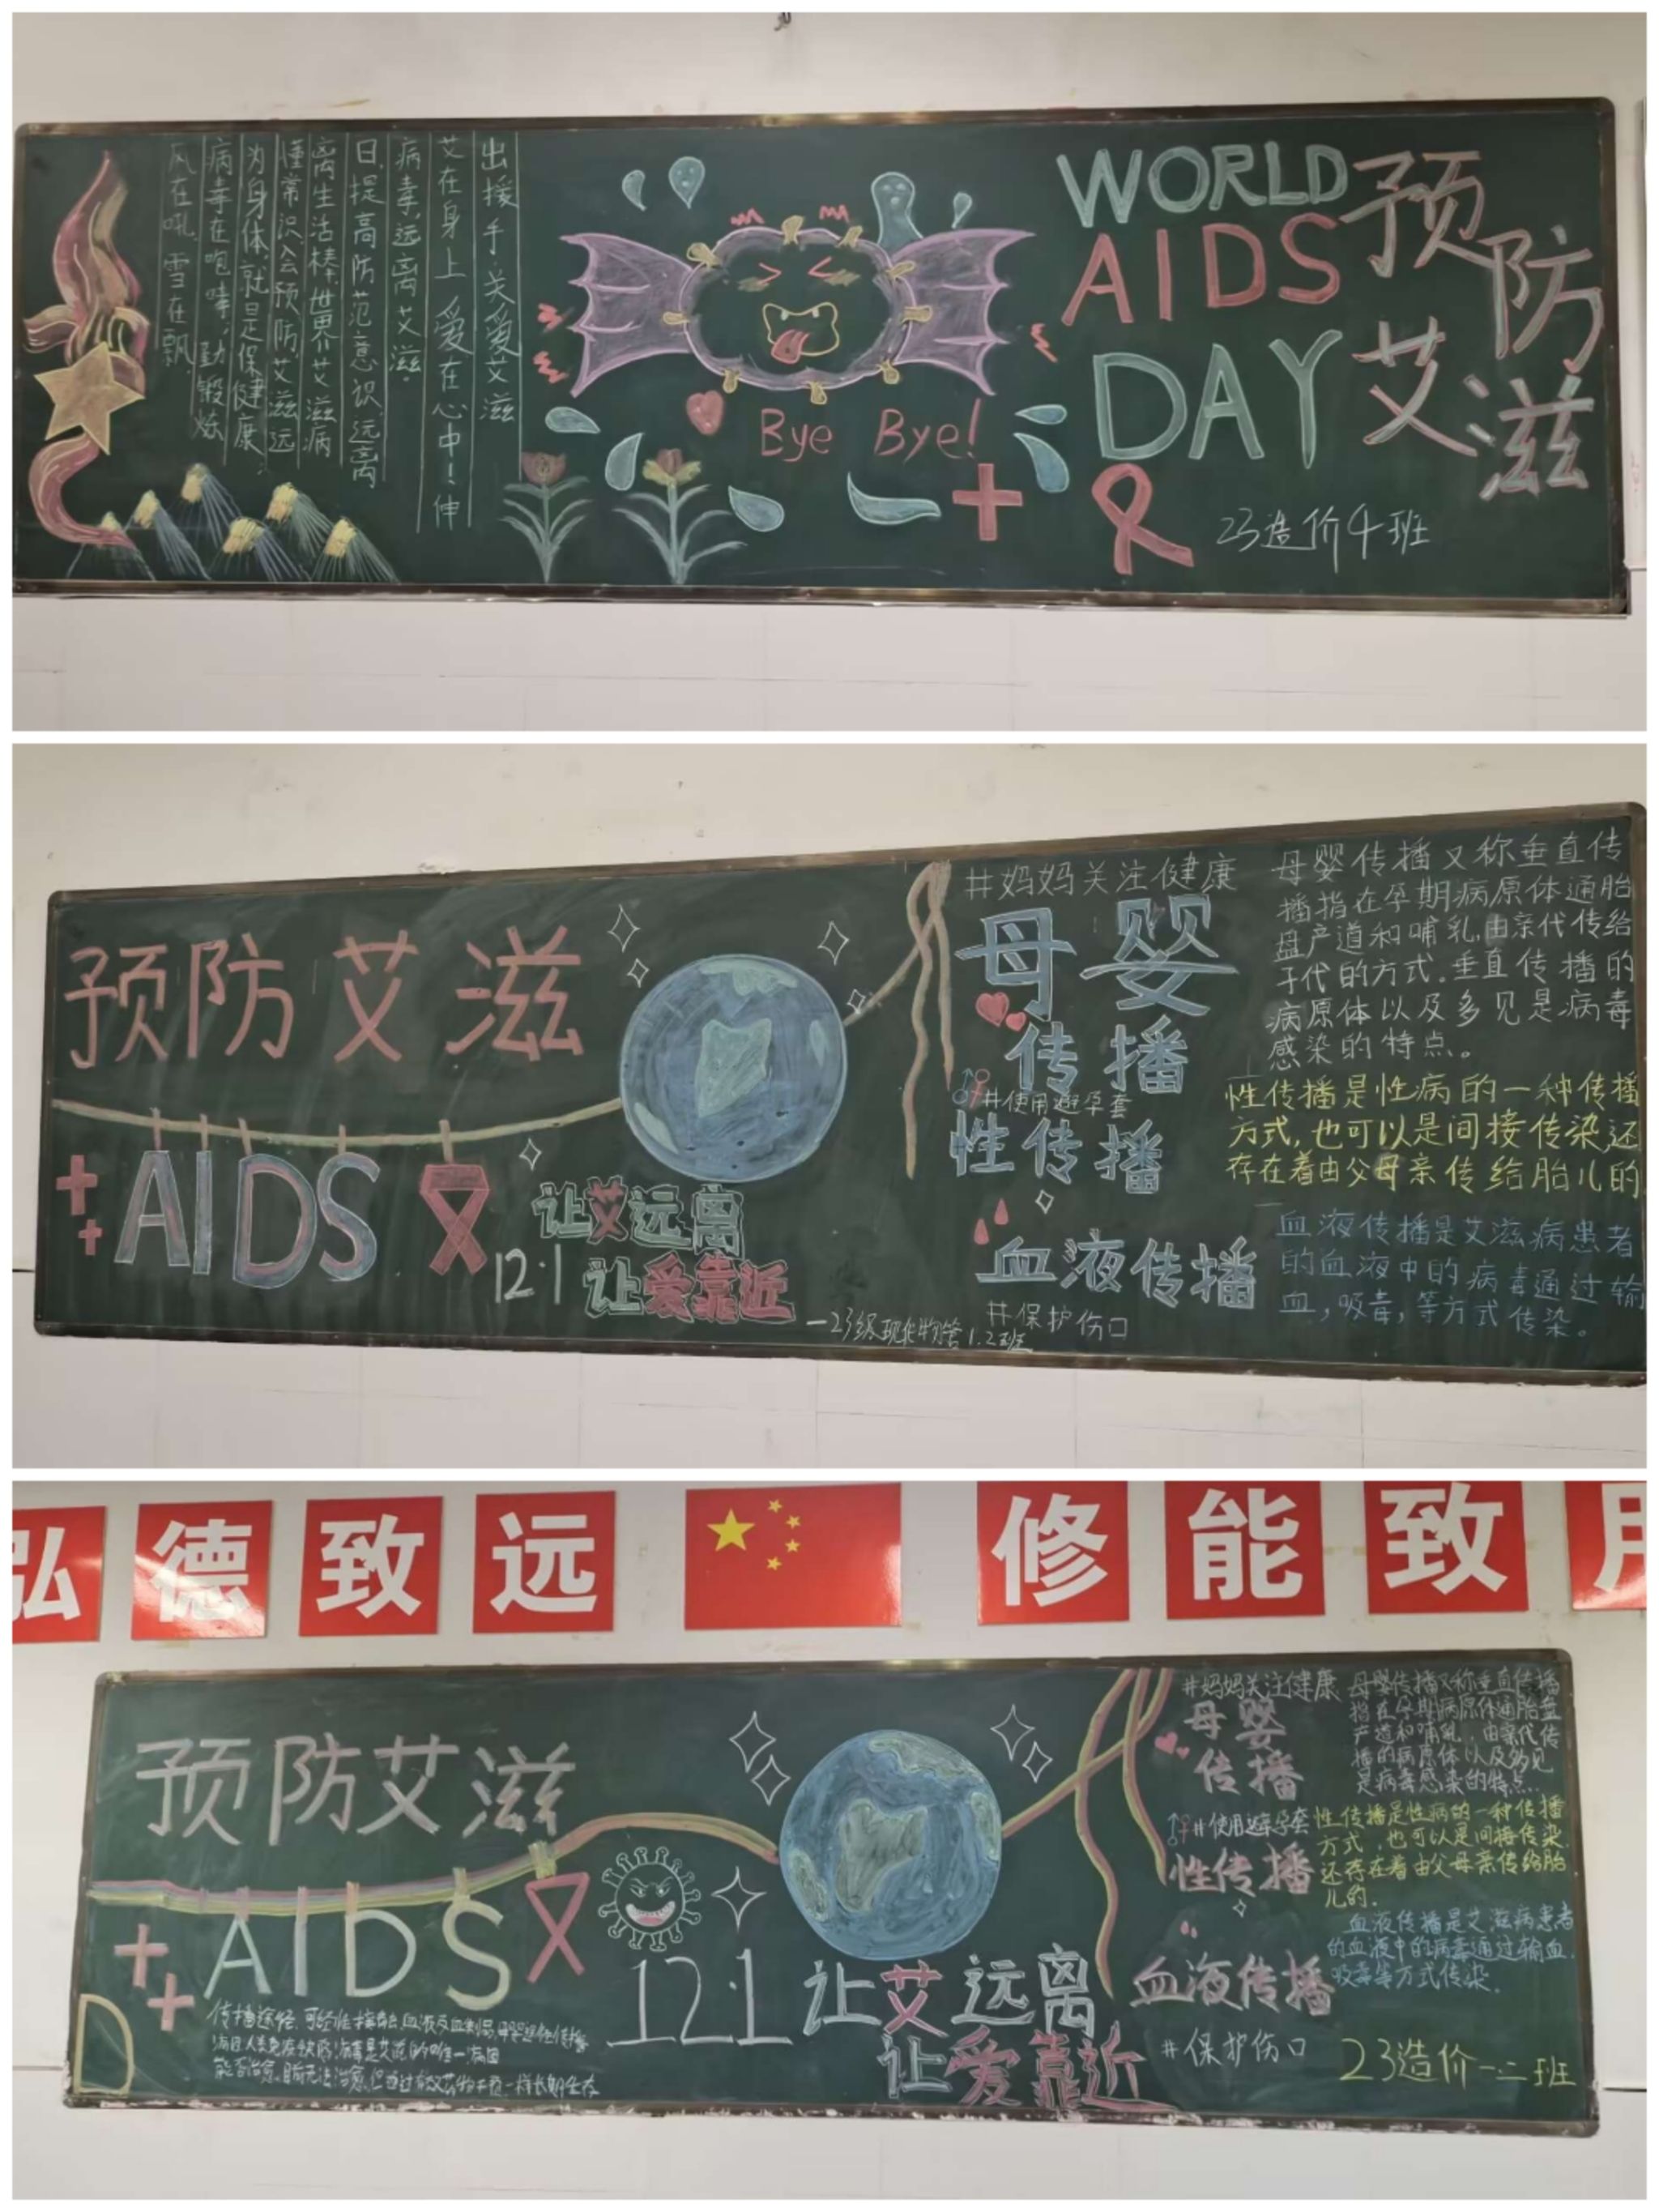 WORLD
AIDS
DAY
预防
艾滋
23造价4班
Bye Bye!
出援手关爱艾滋
艾在身上爱在心中！伸
病毒,远离艾滋。
日,提高防范意识,远离
离生活棒,世界艾滋病
懂常识,会预防,艾滋远
为身体,就是保健康,
病毒在咆哮,勤锻炼
风在吼,雪在飘,
预防艾滋
AIDS
12·1
让艾远离
让爱靠近
#妈妈关注健康
母婴
传播
#使用避孕套
性传播
血液传播
#保护伤口
母婴传播又称垂直传
播指在孕期病原体通胎
盘产道和哺乳,由亲代传给
子代的方式.垂直传播的
病原体以及多见是病毒
感染的特点。
性传播是性病的一种传播
方式,也可以是间接传染还
存在着由父母亲传给胎儿的
血液传播是艾滋病患者
的血液中的病毒通过输
血,吸毒,等方式传染。
弘德致远
修能致用
预防艾滋
AIDS
12·1
让艾远离
让爱靠近
#妈妈关注健康
母婴
传播
#使用避孕套
性传播
血液传播
#保护伤口
母婴传播又称垂直传播
指在孕期病原体通胎盘
产道和哺乳,由亲代传
播的病原体以及多见
是病毒感染的特点.
性传播是性病的一种传播
方式,也可以是间接传染
还存在着由父母亲传给胎
儿的.
血液传播是艾滋病患者
的血液中的病毒通过输血.
吸毒等方式传染.
23造价一.二班